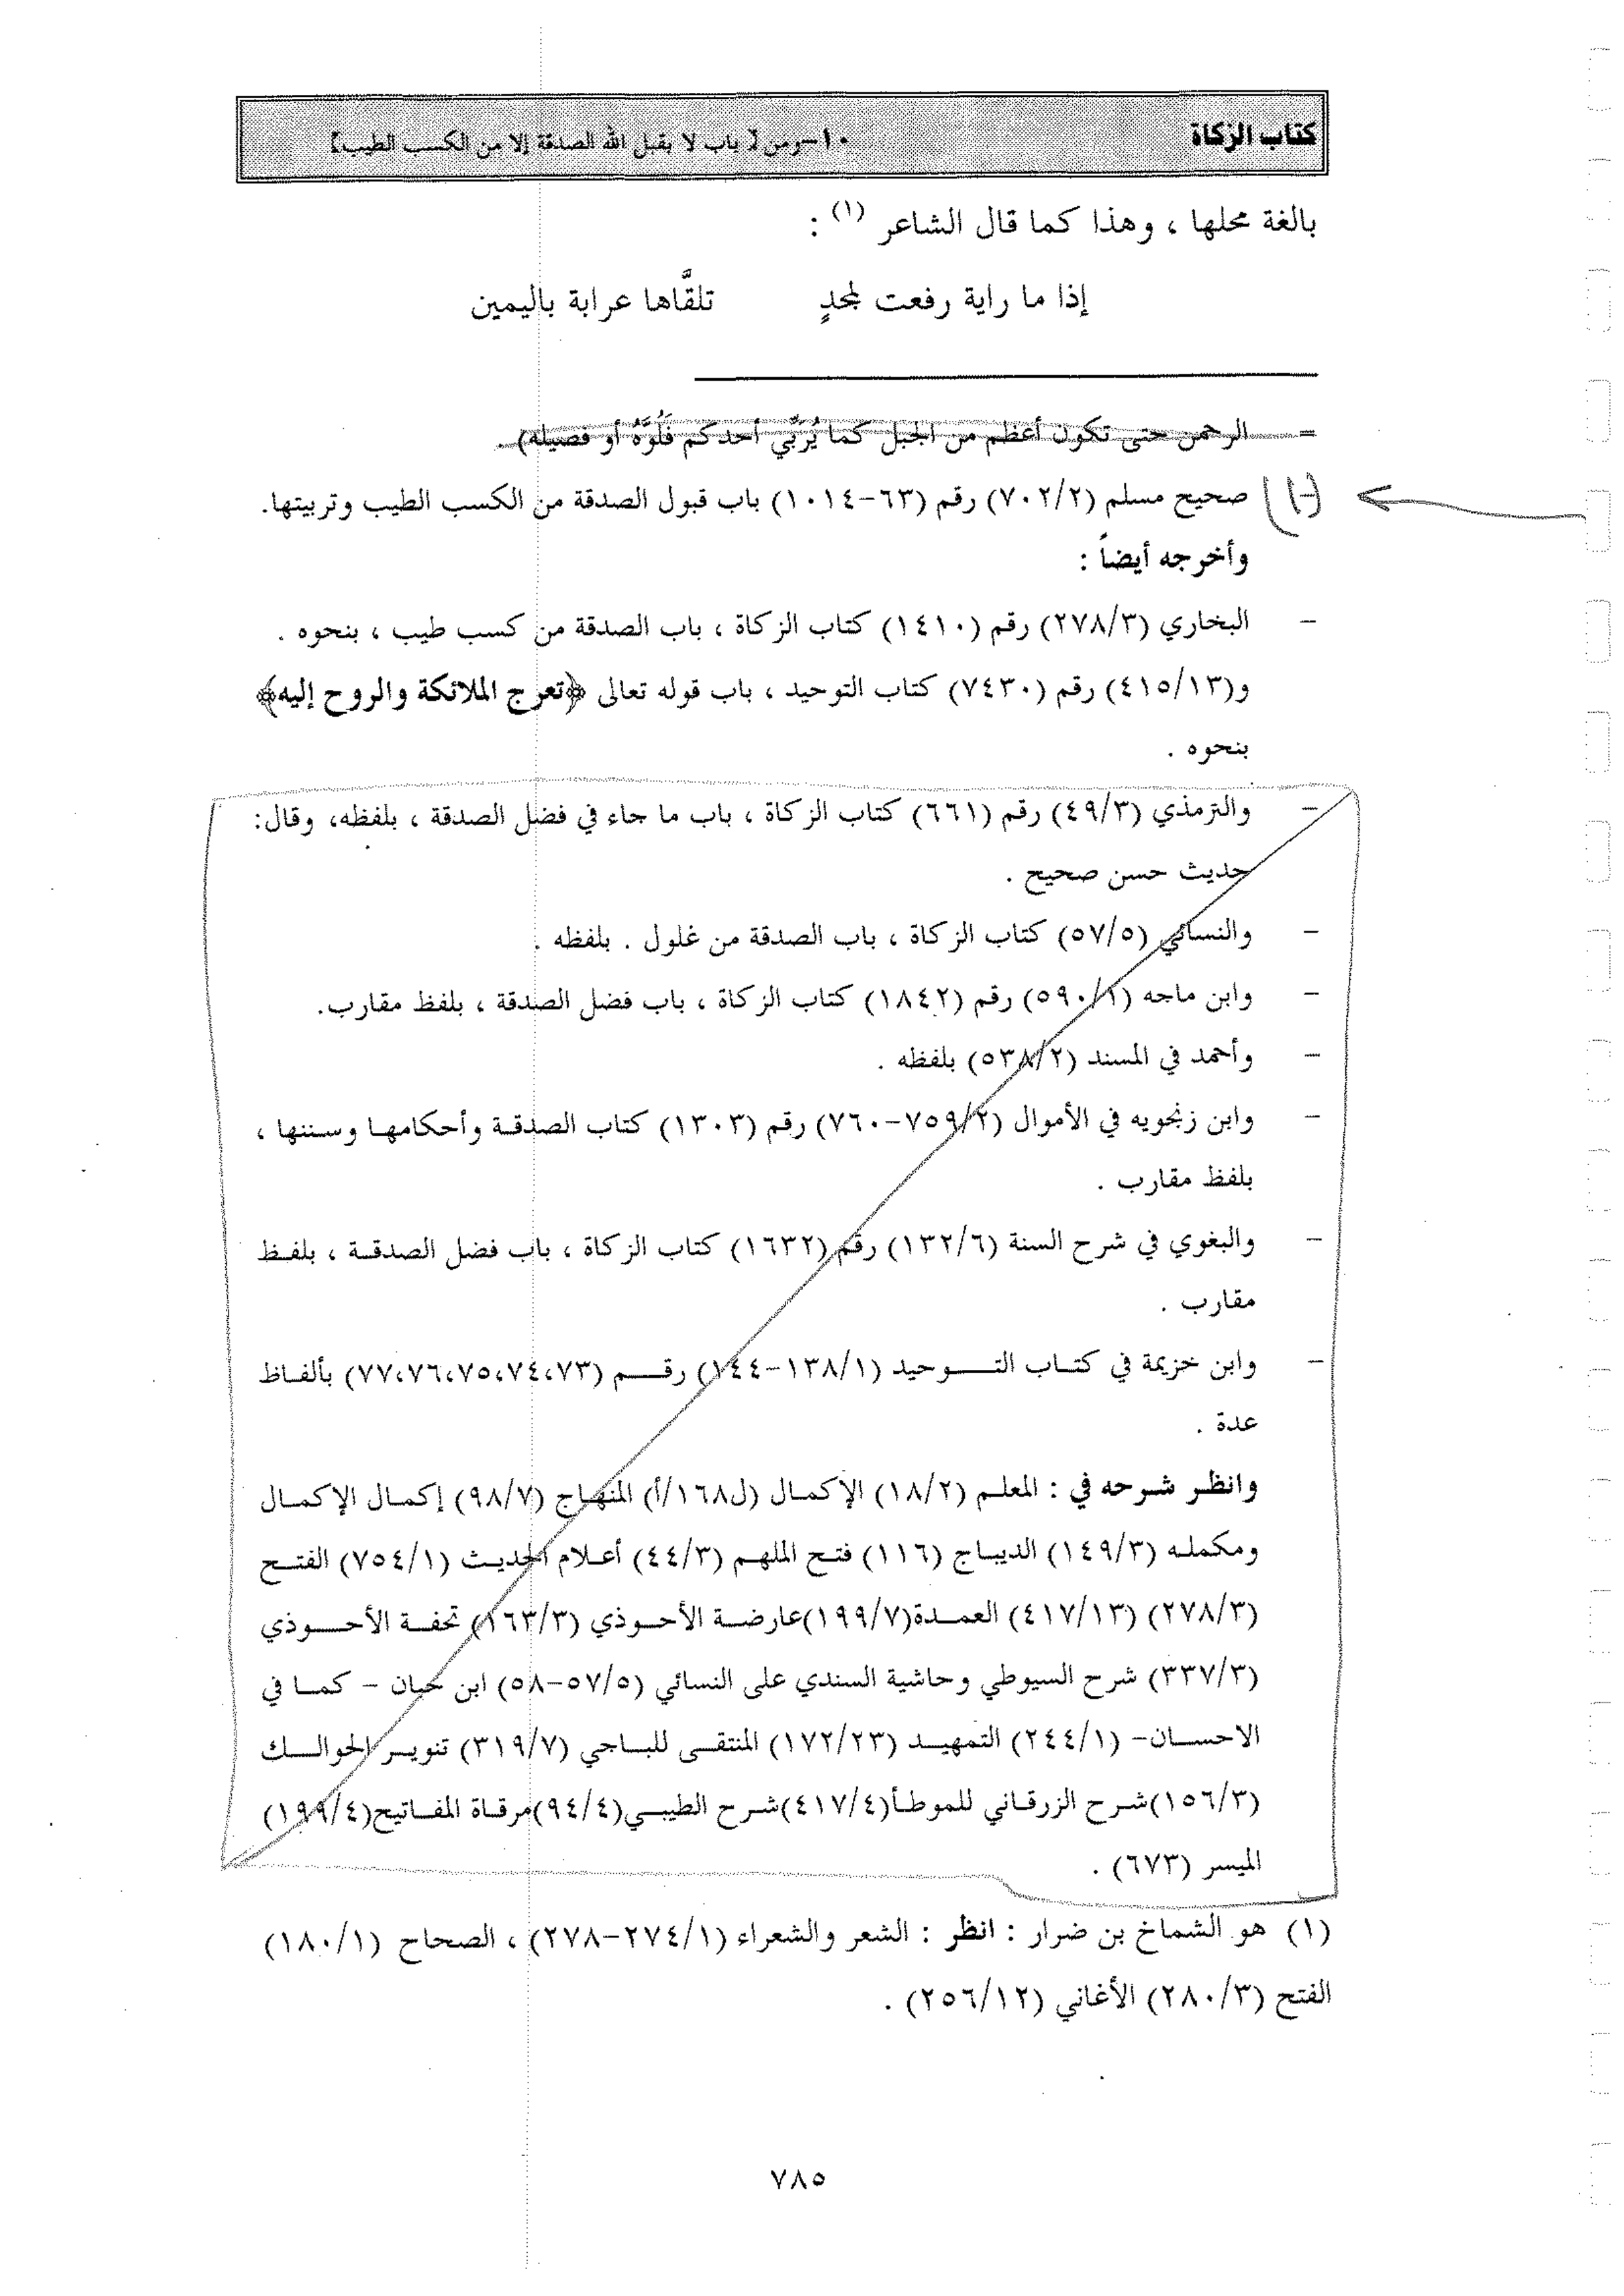 كتاب الزكاة
١٠-ومن [ باب لا يقبل الله الصدقة إلا من الكسب الطيب]
بالغة محلها ، وهذا كما قال الشاعر (١) :
إذا ما راية رفعت لمجدٍ تلقَّاها عرابة باليمين
= الرحمن حتى تكون أعظم من الجبل كما يُرَبِّي أحدكم فَلُوَّهُ أو فصيله) .
(١) صحيح مسلم (٧٠٢/٢) رقم (٦٣-١٠١٤) باب قبول الصدقة من الكسب الطيب وتربيتها.
وأخرجه أيضاً :
- البخاري (٢٧٨/٣) رقم (١٤١٠) كتاب الزكاة ، باب الصدقة من كسب طيب ، بنحوه .
و(٤١٥/١٣) رقم (٧٤٣٠) كتاب التوحيد ، باب قوله تعالى ﴿تعرج الملائكة والروح إليه﴾
بنحوه .
- والترمذي (٤٩/٣) رقم (٦٦١) كتاب الزكاة ، باب ما جاء في فضل الصدقة ، بلفظه، وقال:
حديث حسن صحيح .
- والنسائي (٥٧/٥) كتاب الزكاة ، باب الصدقة من غلول . بلفظه .
- وابن ماجه (٥٩٠/١) رقم (١٨٤٢) كتاب الزكاة ، باب فضل الصدقة ، بلفظ مقارب.
- وأحمد في المسند (٥٣٨/٢) بلفظه .
- وابن زنجويه في الأموال (٧٥٩/٢-٧٦٠) رقم (١٣٠٣) كتاب الصدقة وأحكامها وسننها ،
بلفظ مقارب .
- والبغوي في شرح السنة (١٣٢/٦) رقم (١٦٣٢) كتاب الزكاة ، باب فضل الصدقة ، بلفظ
مقارب .
- وابن خزيمة في كتاب التوحيد (١٣٨/١-١٤٤) رقم (٧٣،٧٤،٧٥،٧٦،٧٧) بألفاظ
عدة .
وانظر شرحه في : المعلم (١٨/٢) الإكمال (ل١٦٨/أ) المنهاج (٩٨/٧) إكمال الإكمال
ومكمله (١٤٩/٣) الديباج (١١٦) فتح الملهم (٤٤/٣) أعلام الحديث (٧٥٤/١) الفتح
(٢٧٨/٣) (٤١٧/١٣) العمدة(١٩٩/٧)عارضة الأحوذي (١٦٣/٣) تحفة الأحوذي
(٣٣٧/٣) شرح السيوطي وحاشية السندي على النسائي (٥٧/٥-٥٨) ابن حبان - كما في
الاحسان- (٢٤٤/١) التمهيد (١٧٢/٢٣) المنتقى للباجي (٣١٩/٧) تنوير الحوالك
(١٥٦/٣)شرح الزرقاني للموطأ(٤١٧/٤)شرح الطيبي(٩٤/٤)مرقاة المفاتيح(١٩٩/٤)
الميسر (٦٧٣) .
(١) هو الشماخ بن ضرار : انظر : الشعر والشعراء (٢٧٤/١-٢٧٨) ، الصحاح (١٨٠/١)
الفتح (٢٨٠/٣) الأغاني (٢٥٦/١٢) .
٧٨٥